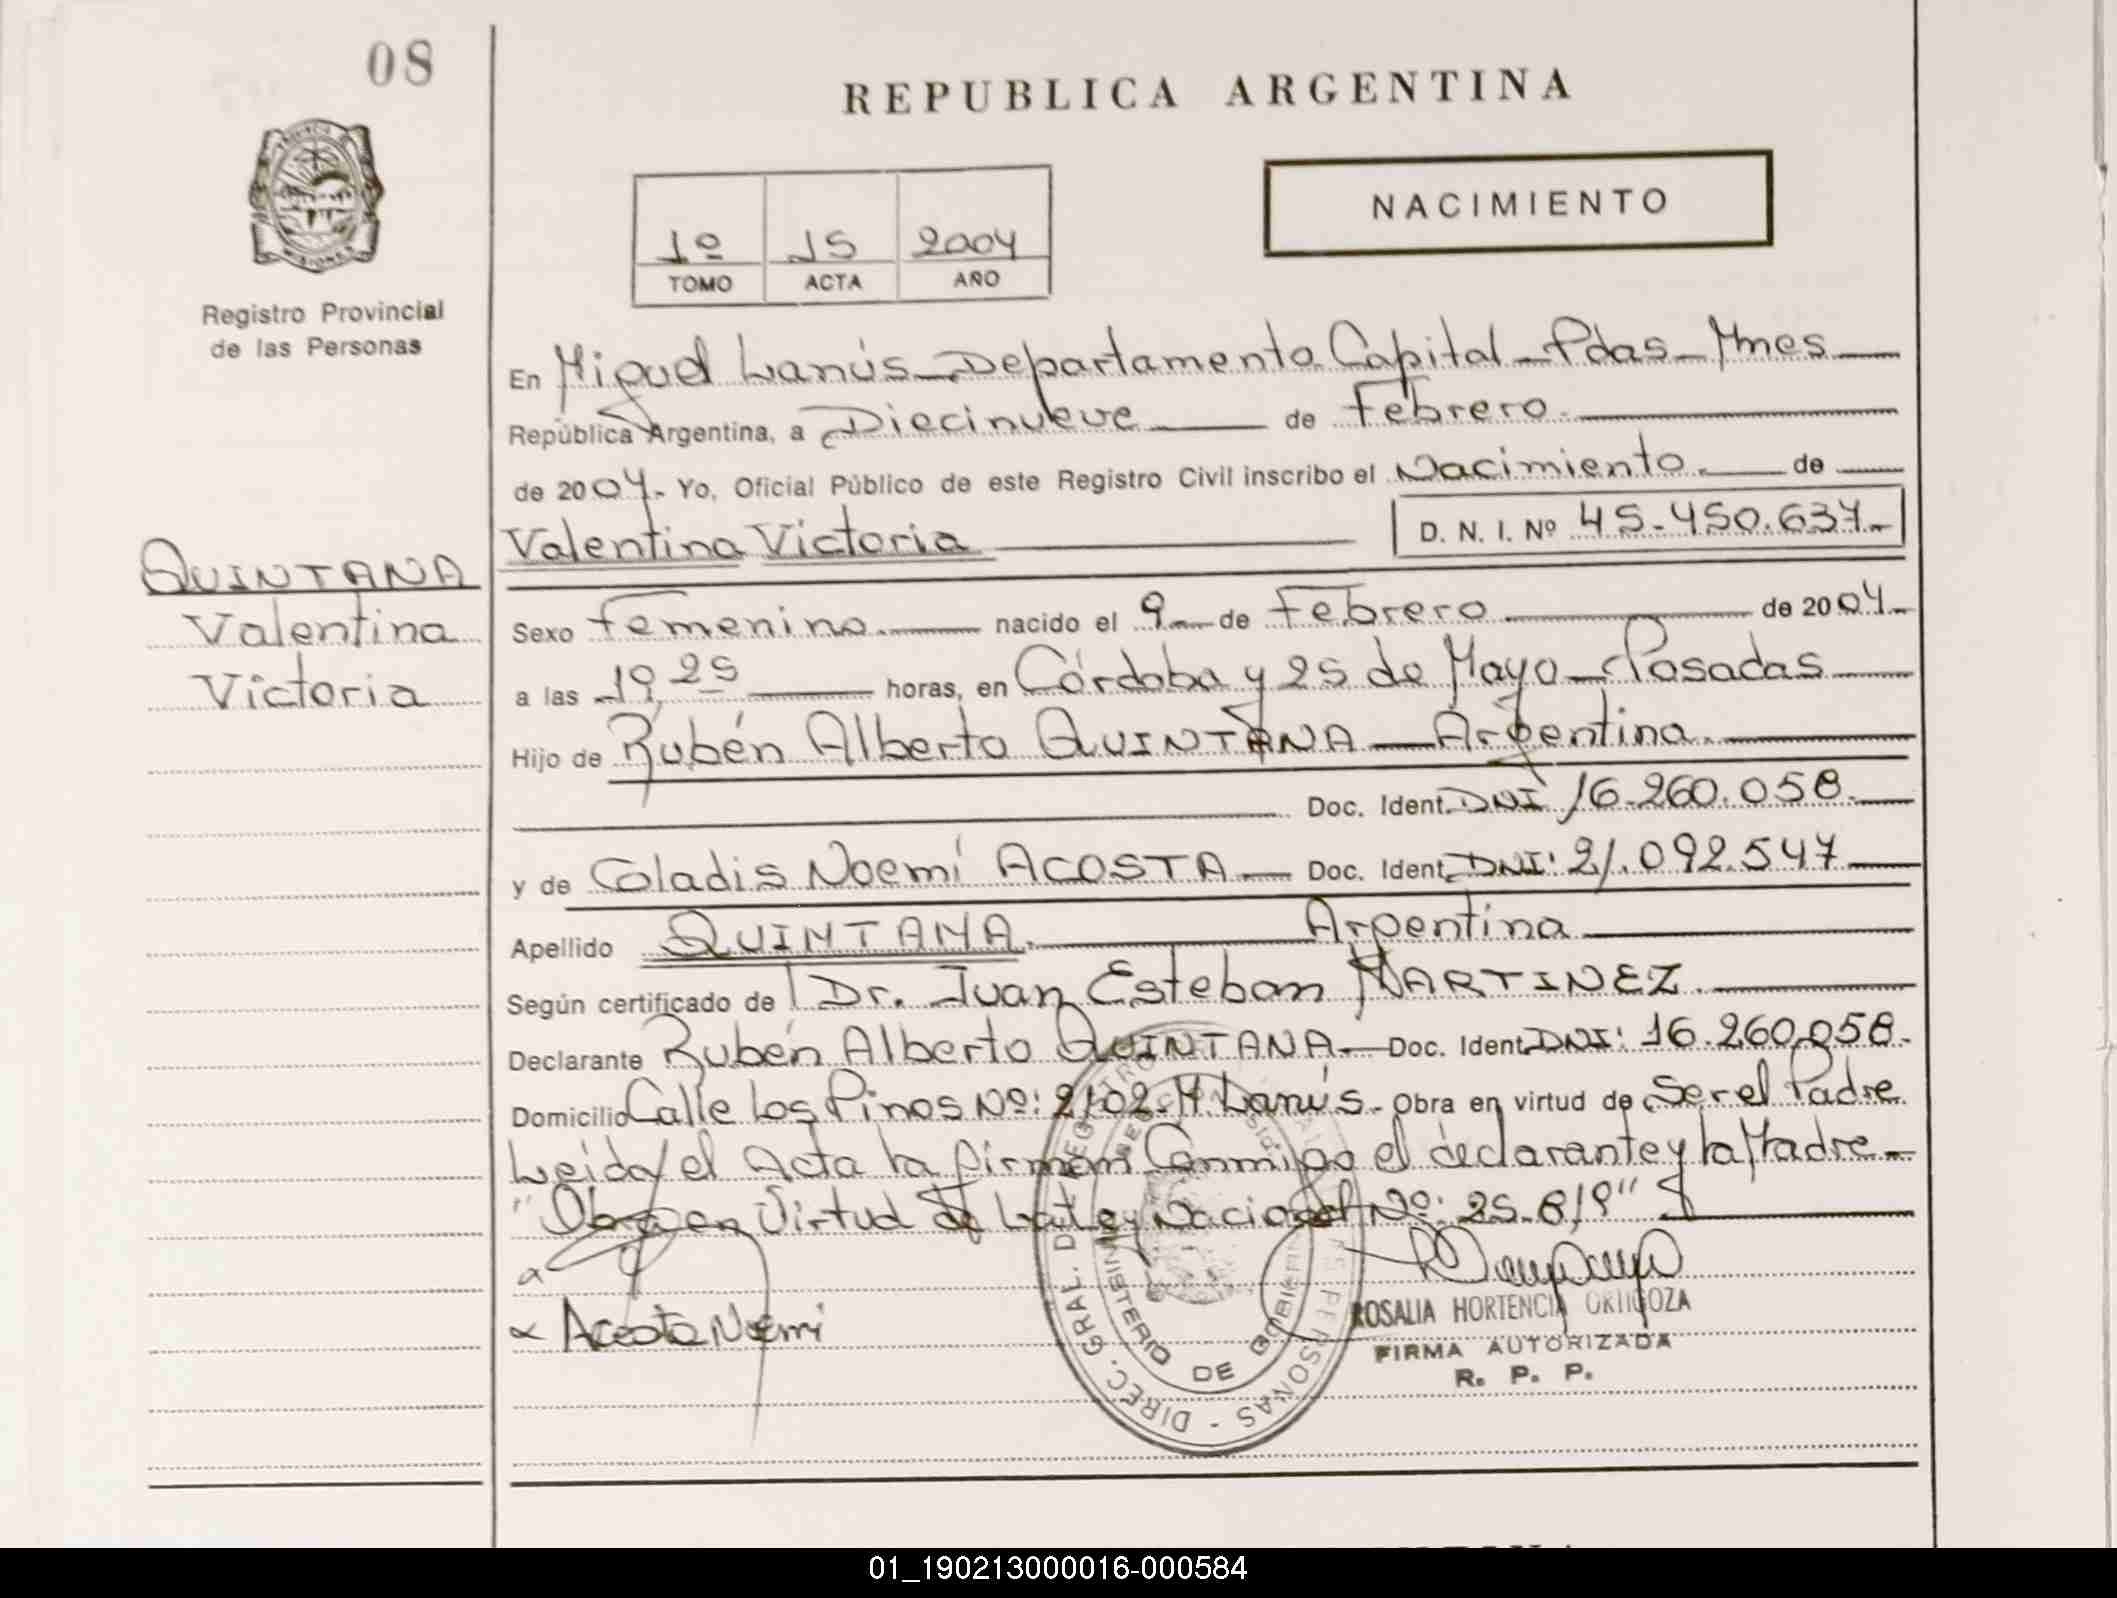 08
REPUBLICA ARGENTINA
NACIMIENTO
1º 15 2004
TOMO ACTA AÑO
Registro Provincial
de las Personas
En Miguel Lanús - Departamento Capital - Pdas - Mnes
República Argentina, a Diecinueve de Febrero.
de 2004. Yo, Oficial Público de este Registro Civil inscribo el Nacimiento. de
Valentina Victoria D. N. I. Nº 45.450.637.
QUINTANA
Valentina
Victoria
Sexo Femenino. nacido el 9 de Febrero de 2004.
a las 19,25 horas, en Córdoba y 25 de Mayo - Posadas
Hijo de Rubén Alberto QUINTANA - Argentina.
Doc. Ident. DNI 16.260.058.
y de Gladis Noemí ACOSTA - Doc. Ident. DNI: 21.092.547
Apellido QUINTANA. Argentina
Según certificado de Dr. Juan Esteban MARTINEZ.
Declarante Rubén Alberto QUINTANA. Doc. Ident. DNI: 16.260.058.
Domicilio Calle Los Pinos Nº: 2102. M Lanús. Obra en virtud de Ser el Padre
Leida el Acta la firman Conmigo el declarante y la Madre
"Obra en Virtud de La Ley Nacional Nº: 25.819"
Acosta Noemi
ROSALIA HORTENCIA ORTIGOZA
FIRMA AUTORIZADA
R. P. P.
DIREC. GRAL. DE REGISTRO PERSONAS
MINISTERIO DE GOBIERNO
01_190213000016-000584